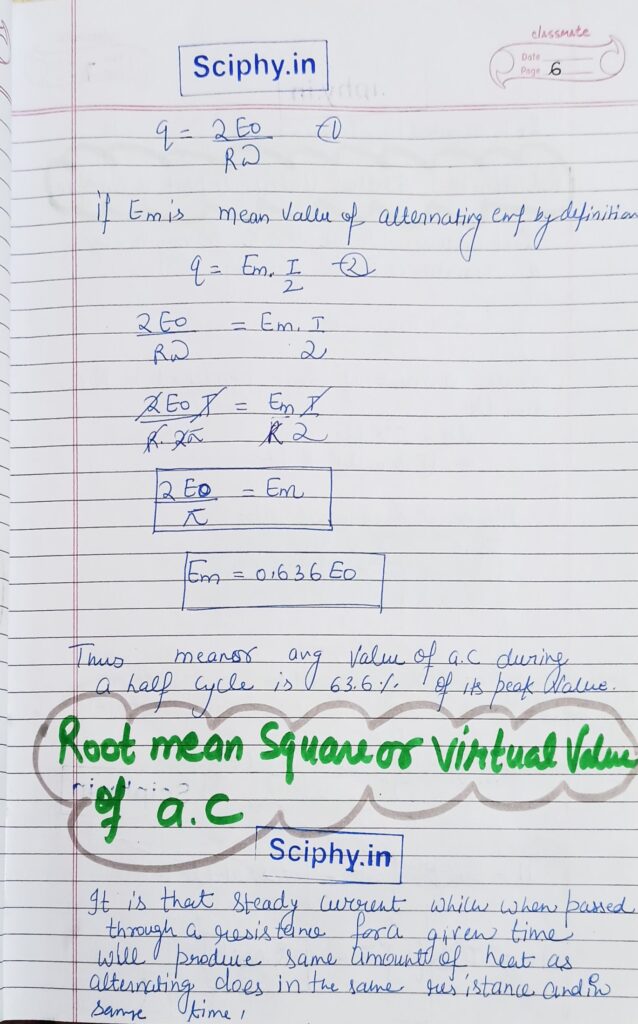 classmate
Date
Page 6
Sciphy.in
q = 2E0 / Rω ①
if Em is mean value of alternating emf by definition
q = Em. I/2 ②
2E0 / Rω = Em. I / 2
2E0 T / R. 2π = Em T / R 2
2E0 / π = Em
Em = 0.636 E0
Thus mean or avg value of a.c during
a half cycle is 63.6% of its peak value.
Root mean Square or virtual value
of a.c
Sciphy.in
It is that steady current which when passed
through a resistance for a given time
will produce same amount of heat as
alternating does in the same resistance and in
same time,